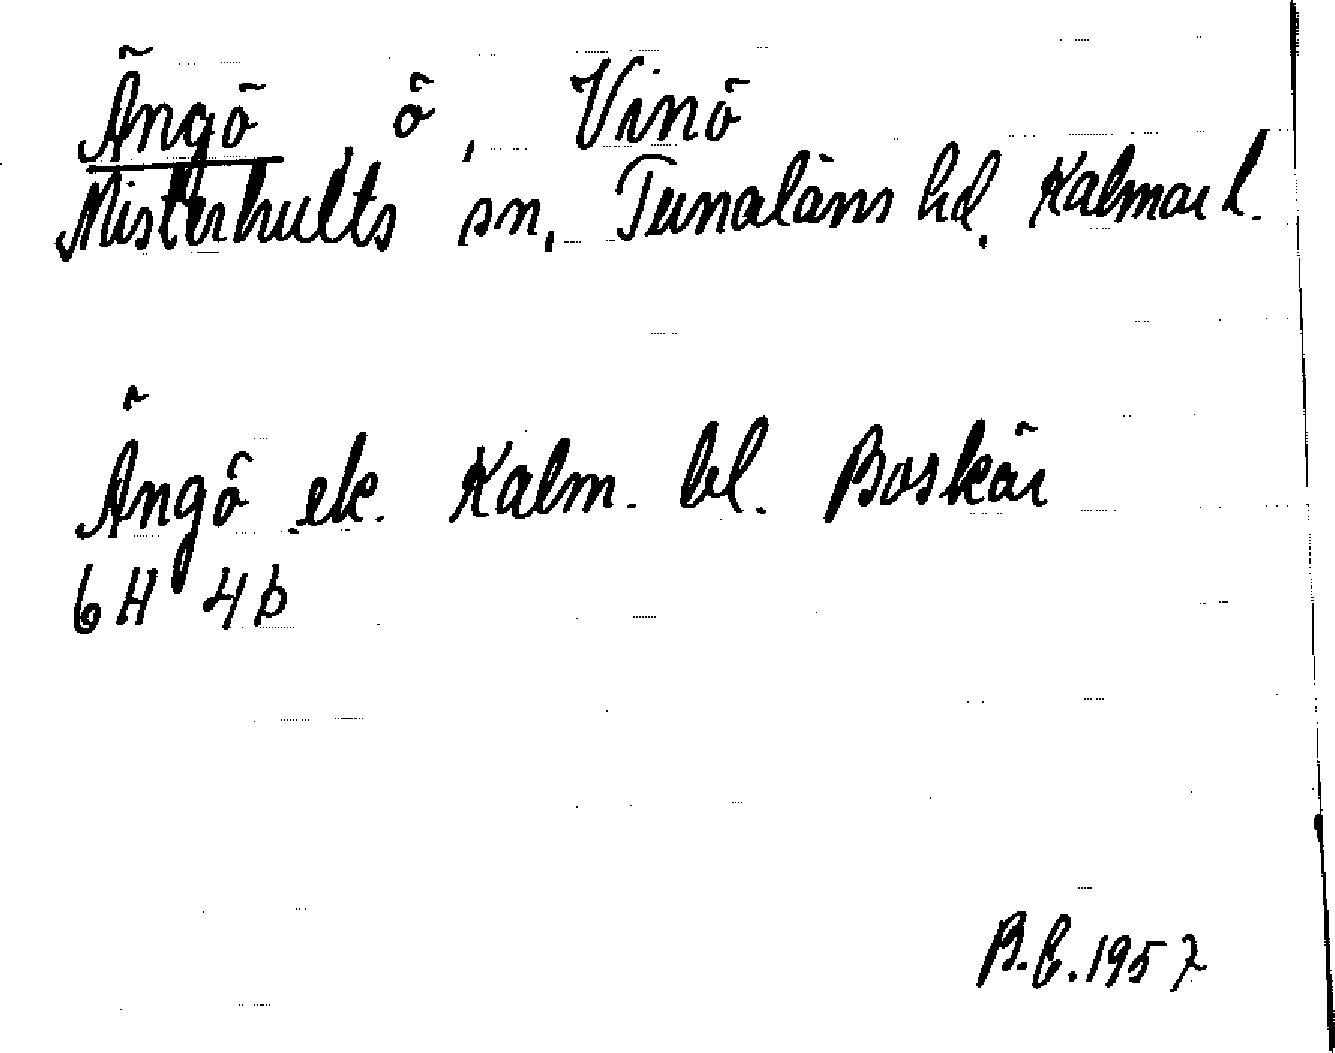 Ängö, ö, Vinö
Misterhults sn, Tunaläns hd. Kalmar l.
Ängö ek. Kalm. bl. Boskär
6H 4b
B.E. 1957